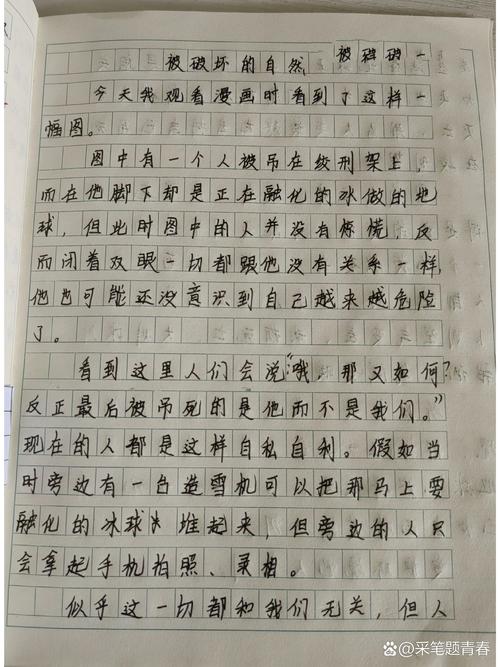 被破坏的自然
被碎破一
今天我观看漫画时看到了这样一
幅图。
图中有一个人被吊在绞刑架上，
而在他脚下却是正在融化的冰做的地
球，但此时图中的人并没有惊慌，反
而闭着双眼一切都跟他没有关系一样，
他也可能还没意识到自己越来越危险
了。
看到这里人们会说“哦，那又如何？
反正最后被吊死的是他而不是我们。”
现在的人都是这样自私自利。假如当
时旁边有一台造雪机可以把那马上要
融化的冰球堆起来，但旁边的人只
会拿起手机拍照、录相。
似乎这一切都和我们无关，但人
采笔题青春